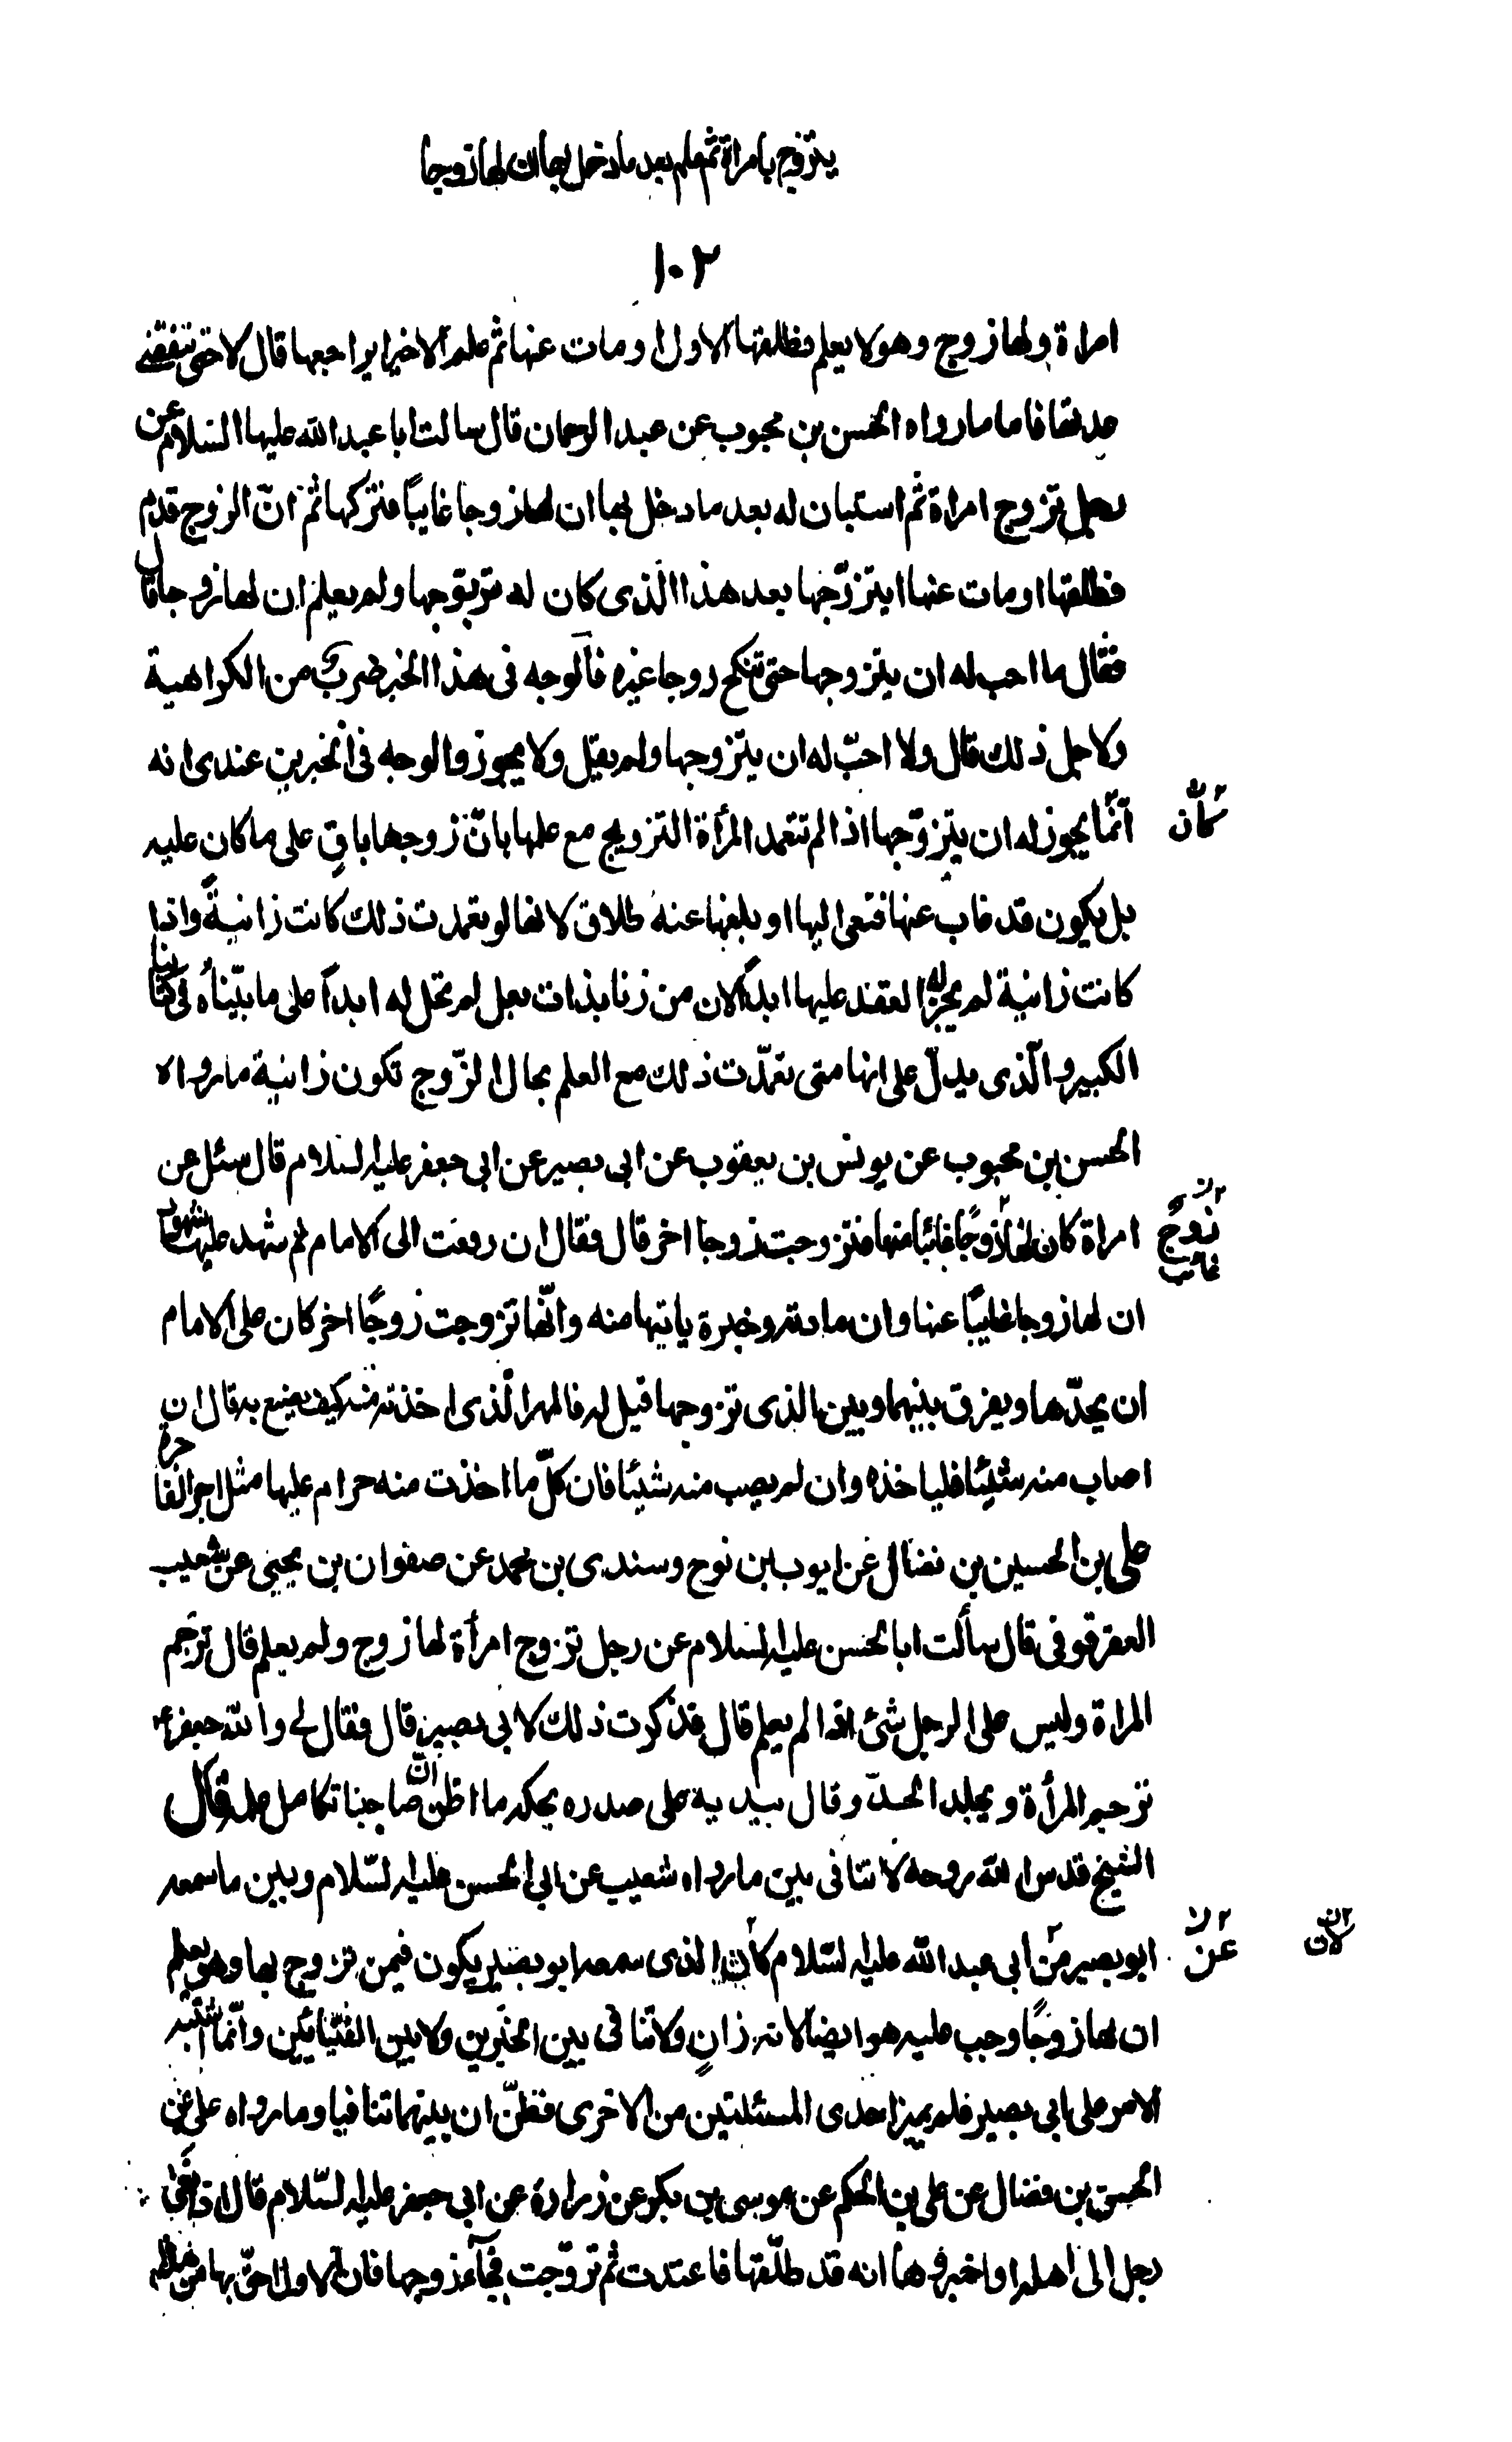 يتزوج بامراة ثم علم بعد ما دخل بها ان لها زوجا
١٠٢
امراة ولها زوج وهو لا يعلم فطلقها الاول او مات عنها ثم علم الاخير ايراجعها قال لا حتى تنقضي
عدتها فاما ما رواه الحسن بن محبوب عن عبد الرحمان قال سالت ابا عبد الله عليه السلام عن
رجل تزوج امراة ثم استبان له بعد ما دخل بها ان لها زوجا غايبًا فتركها ثم انّ الزوج قدم
فطلقها او مات عنها ايتزوّجها بعد هذا الّذى كان له تزوجها ولم يعلم ان لها زوجا قال
فقال ما احب له ان يتزوجها حتى تنكح زوجا غيره فالوجه فى هذا الخبر ضرب من الكراهية
ولاجل ذلك قال ولا احبّ له ان يتزوجها ولم يقل ولا يجوز والوجه فى الخبرين عندى انه
انّما يجوز له ان يتزوّجها اذا لم تتعمد المرأة التزويج مع علمها بانّ زوجها باقٍ على ما كان عليه
بل يكون قد غاب عنها فنعى اليها او بلغها عنه طلاق لانها لو تعمدت ذلك كانت زانيةً واذا
كانت زانية لم يجز له العقد عليها ابدًا لان من زنا بذات بعل لم تحل له ابداً على ما بيّناه فى كتابنا
الكبير والّذى يدلّ على انها متى تعمّدت ذلك مع العلم بحال الزّوج تكون زانية ما رواه
الحسن بن محبوب عن يونس بن يعقوب عن ابى بصير عن ابى جعفر عليه السلام قال سئل عن
امراة كان لها زوجًا غائبًا عنها فتزوجت زوجا اخر قال فقال ان رفعت الى الامام ثم شهد عليها شهود
زوج
غايب
ان لها زوجا غايبًا عنها وان مادته وخبره ياتيها منه وانّها تزوجت زوجًا اخر كان على الامام
ان يحدّها ويفرق بينهما وبين الذى تزوجها قيل له فالمهر الّذى اخذته منه كيف يصنع به قال ان
اصاب منه شيئا فلياخذه وان لم يصب منه شيئا فان كلّ ما اخذت منه حرام عليها مثل اجر الفاجرة
على بن الحسين بن فضال عن ايوب بن نوح وسندى بن محمد عن صفوان بن يحيى عن شعيب
العقرقوفى قال سألت ابا الحسن عليه السلام عن رجل تزوج امرأة لها زوج ولم يعلم قال ترجم
المراة وليس على الرجل شئ اذا لم يعلم قال فذكرت ذلك لابى بصير قال فقال لى والله جعفر ع
ترجم المرأة ويجلد الحدّ وقال بيديه على صدره يحكه ما اظن انّ صاحبنا تكامل علمه قال
الشيخ قدس الله روحه لا تنافى بين ما رواه شعيب عن ابى الحسن عليه السّلام وبين ما سمعه
ابو بصير من ابى عبد الله عليه السّلام كان الذى سمعه ابو بصير يكون فيمن تزوج بها وهو يعلم
عن
لان
ان لها زوجًا وجب عليه هو ايضا لانه زانٍ ولا تنافى بين الخبرين ولا بين الفتيائين وانّما اشتبه
الامر على ابى بصير فلم يميز احدى المسئلتين من الاخرى فظنّ ان بينهما تنافيا وما رواه على بن
الحسن بن فضال عن على بن الحكم عن موسى بن بكر عن زرارة عن ابى جعفر عليه السّلام قال اذا نعى
رجل الى اهله او اخبروها انه قد طلّقها فاعتدت ثم تزوّجت فجآء زوجها فان الاول احقّ بها من هذا